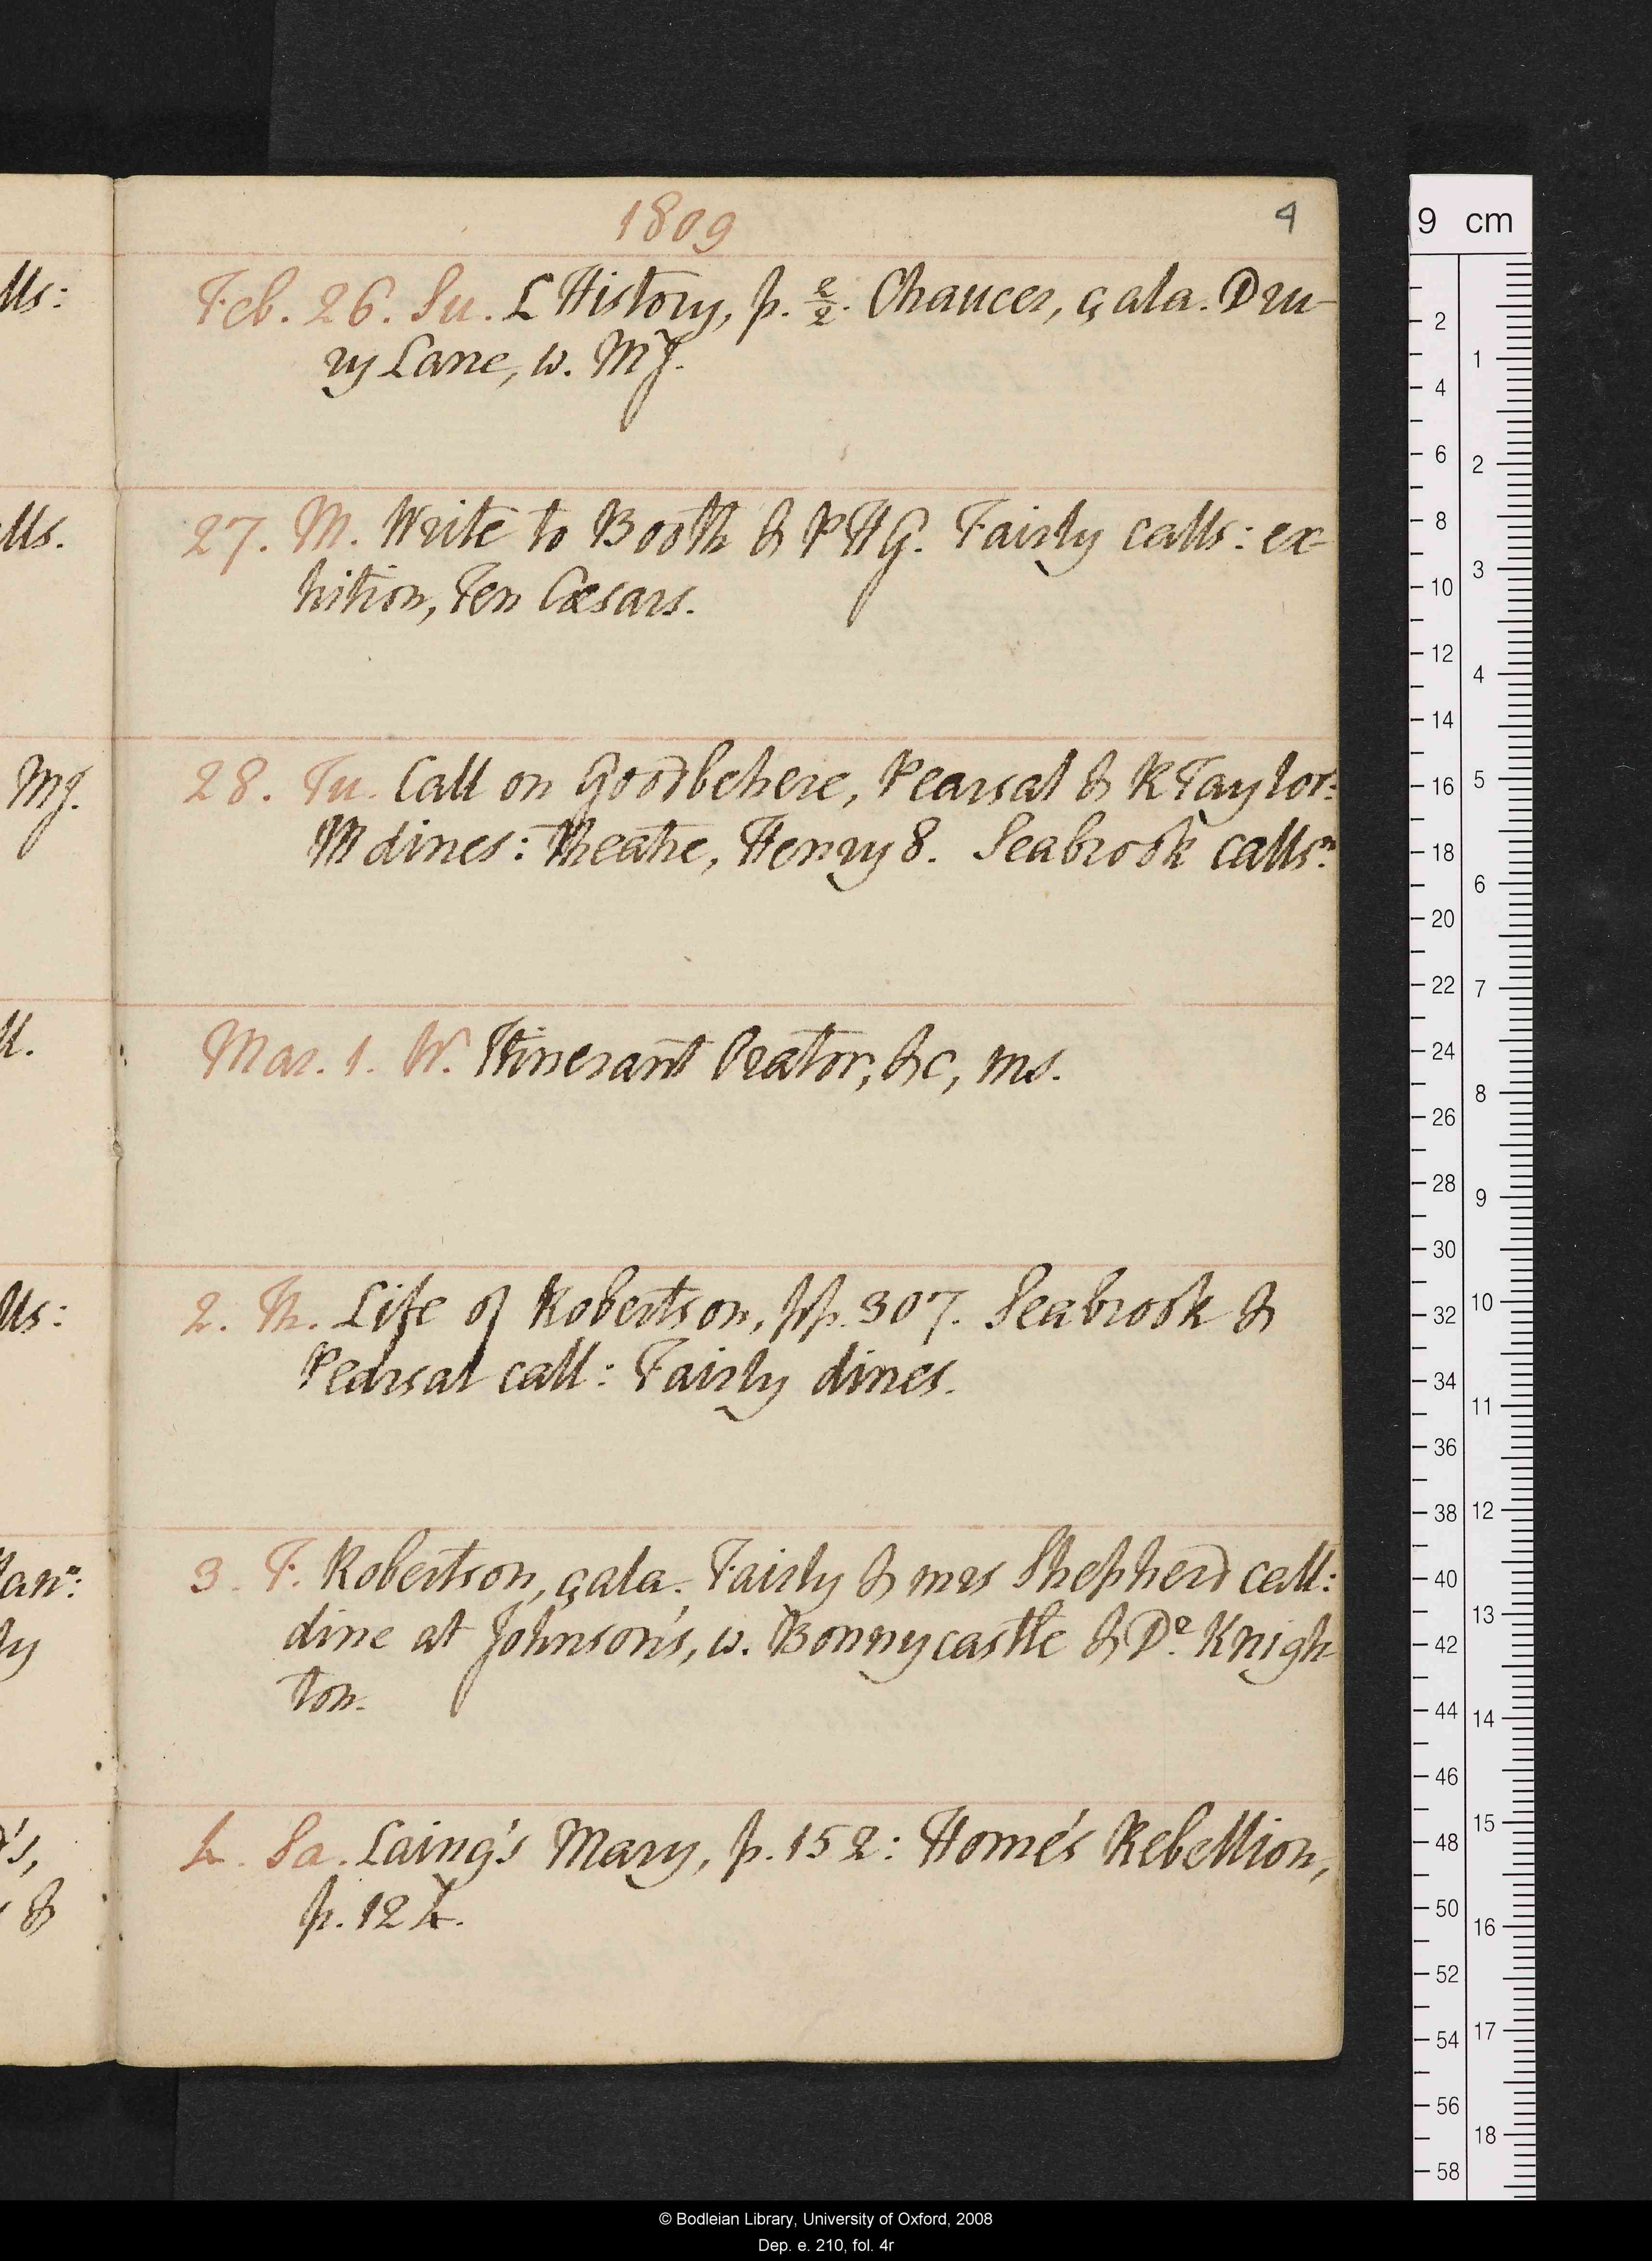 1809
4
Feb. 26. Su. L History, p. 2/2. Chaucer, çala. Dru-
ry Lane, w. MJ.
27. M. Write to Booth & PHG. Fairly calls: ex-
hition, Ten Cæsars.
28. Tu. Call on Goodbehere, Pearsal & R Taylor:
M dines: theatre, Henry 8. Seabrook calls n.
Mar. 1. W. Itinerant Orator, &c, ms.
2. Th. Life of Robertson, pp. 307. Seabrook &
Pearsal call: Fairly dines.
3. F. Robertson, çala. Fairly & mrs Shepherd call:
dine at Johnson's, w. Bonnycastle & Dr. Knigh-
ton.
4. Sa. Laing's Mary, p. 152: Home's Rebellion,
p. 124.
lls:
lls.
MJ.
ll.
lls:
an n:
ly
's,
&
9 cm
2
4
6
8
10
12
14
16
18
20
22
24
26
28
30
32
34
36
38
40
42
44
46
48
50
52
54
56
58
1
2
3
4
5
6
7
8
9
10
11
12
13
14
15
16
17
18
© Bodleian Library, University of Oxford, 2008
Dep. e. 210, fol. 4r